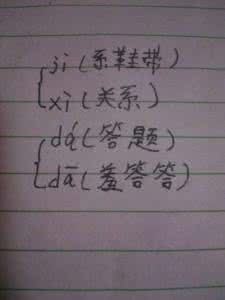 jì(系鞋带)
xì(关系)
dá(答题)
dā(羞答答)